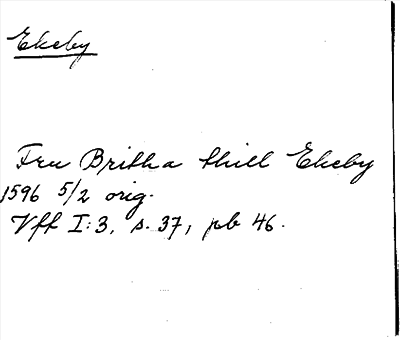 Ekeby
Fru Britha thill Ekeby
1596 5/2 orig.
Vff I:3, s. 37, pb 46.